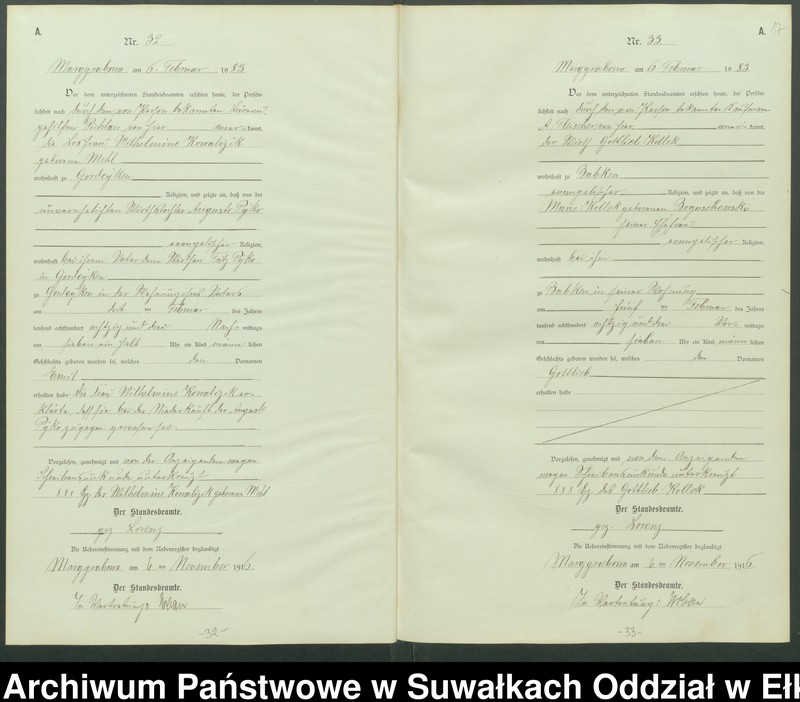 A.
Nr. 32
Marggrabowa am 6. Februar 1883
Vor dem unterzeichneten Standesbeamten erschien heute, der Persön-
lichkeit nach durch den von Person bekannten Büreau-
gehilfen von hier kannt,
die Losfrau Wilhelmine Kowalizik
geborene Mehl
wohnhaft zu Gordeyken
Religion, und zeigte an, daß von der
unverehelichten Wirthstochter Auguste Pyko
evangelischer Religion,
wohnhaft bei ihrem Vater dem Wirthen Pyko
in Gordeyken
zu Gordeyken in der Wohnung ihres Vaters
am drei ten Februar des Jahres
tausend achthundert achtzig und drei Nach- mittags
um sieben ein halb Uhr ein Kind männ lichen
Geschlechts geboren worden sei, welches den Vornamen
Emil
erhalten habe. Die Frau Wilhelmine Kowalizik er-
klärte, daß sie bei der Niederkunft der Auguste
Pyko zugegen gewesen sei.
Vorgelesen, genehmigt und von der Anzeigenden wegen
Schreibensunkunde unterkreuzt
XXX Hz. der Wilhelmine Kowalizik geborene Mehl
Der Standesbeamte.
gez Lorenz
Die Uebereinstimmung mit dem Nebenregister beglaubigt
Marggrabowa am 6 ten November 1916.
Der Standesbeamte.
In Vertretung:
-32-
A.
17
Nr. 33
Marggrabowa am 6 Februar 1883.
Vor dem unterzeichneten Standesbeamten erschien heute, der Persön-
lichkeit nach durch den von Person bekannten Kaufmann
A. Fleischer von hier kannt,
der Wirth Gottlieb Kollek
wohnhaft zu Babken
evangelischer Religion, und zeigte an, daß von der
Marie Kollek geborenen Boguschewski
seiner Ehefrau
evangelischer Religion,
wohnhaft bei ihm
zu Babken in seiner Wohnung
am fünf ten Februar des Jahres
tausend achthundert achtzig und drei Vor- mittags
um sieben Uhr ein Kind männ lichen
Geschlechts geboren worden sei, welches den Vornamen
Gottlieb
erhalten habe
Vorgelesen, genehmigt und von dem Anzeigenden
wegen Schreibensunkunde unterkreuzt
XXX Hz. des Gottlieb Kollek
Der Standesbeamte.
gez. Lorenz
Die Uebereinstimmung mit dem Nebenregister beglaubigt
Marggrabowa am 6 ten November 1916.
Der Standesbeamte.
In Vertretung:
-33-
Archiwum Państwowe w Suwałkach Oddział w Ełk